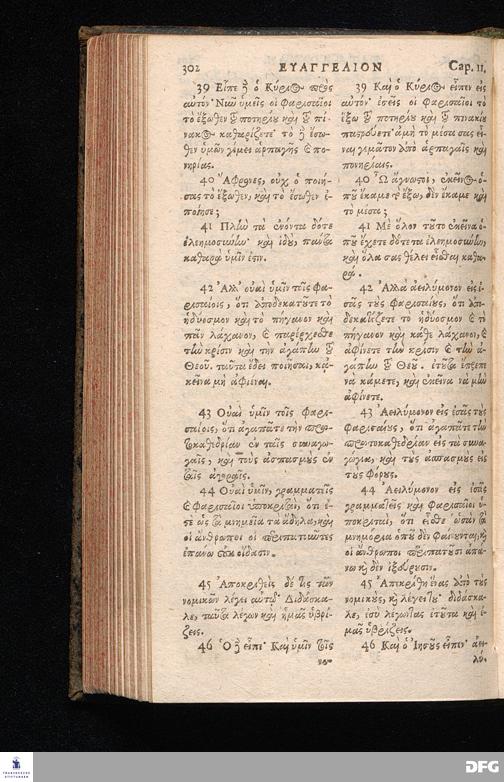 302 ΕΥΑΓΓΕΛΙΟΝ Cap. 11.
39 Εἶπε δὲ ὁ Κύριος πρὸς
αὐτόν· Νῦν ὑμεῖς οἱ Φαρισαῖοι
τὸ ἔξωθεν τοῦ ποτηρίου καὶ τοῦ πί-
νακος καθαρίζετε· τὸ δὲ ἔσω-
θεν ὑμῶν γέμει ἁρπαγῆς καὶ πο-
νηρίας.
40 Ἄφρονες, οὐχ ὁ ποιή-
σας τὸ ἔξωθεν, καὶ τὸ ἔσωθεν ἐ-
ποίησε;
41 Πλὴν τὰ ἐνόντα δότε
ἐλεημοσύνην· καὶ ἰδοὺ, πάντα
καθαρὰ ὑμῖν ἐστιν.
42 Ἀλλ' οὐαὶ ὑμῖν τοῖς Φα-
ρισαίοις, ὅτι ἀποδεκατοῦτε τὸ
ἡδύοσμον καὶ τὸ πήγανον καὶ
πᾶν λάχανον, καὶ παρέρχεσθε
τὴν κρίσιν καὶ τὴν ἀγάπην τοῦ
Θεοῦ. ταῦτα ἔδει ποιῆσαι, κἀ-
κεῖνα μὴ ἀφιέναι.
43 Οὐαὶ ὑμῖν τοῖς Φαρι-
σαίοις, ὅτι ἀγαπᾶτε τὴν πρω-
τοκαθεδρίαν ἐν ταῖς συναγω-
γαῖς, καὶ τοὺς ἀσπασμοὺς ἐν
ταῖς ἀγοραῖς.
44 Οὐαὶ ὑμῖν, γραμματεῖς
καὶ Φαρισαῖοι ὑποκριταὶ, ὅτι ἐ-
στὲ ὡς τὰ μνημεῖα τὰ ἄδηλα, καὶ
οἱ ἄνθρωποι οἱ περιπατοῦντες
ἐπάνω οὐκ οἴδασιν.
45 Ἀποκριθεὶς δέ τις τῶν
νομικῶν λέγει αὐτῷ· Διδάσκα-
λε, ταῦτα λέγων καὶ ἡμᾶς ὑβρί-
ζεις.
46 Ὁ δὲ εἶπε· Καὶ ὑμῖν τοῖς
39 Καὶ ὁ Κύριος εἶπεν εἰς
αὐτόν· ἐσεῖς οἱ Φαρισαῖοι τὸ
ἔξω τοῦ ποτηρίου καὶ τοῦ πινακίου
παστρεύετε· ἀμὴ τὸ μέσα σας εἶ-
ναι γεμάτον ἀπὸ ἁρπαγαῖς καὶ
πονηρίαις.
40 Ὦ ἄγνωστοι, ἐκεῖνος ὁ-
ποῦ ἔκαμε τὸ ἔξω, δὲν ἔκαμε καὶ
τὸ μέσα;
41 Μὲ ὅλον τοῦτο ἐκεῖνα ὁ-
ποῦ ἔχετε δότε τα ἐλεημοσύνην,
καὶ ὅλα σας θέλει εἶσθαι καθα-
ρά.
42 Ἀλλὰ ἀειλύμονον εἰς ἐ-
σᾶς τοὺς Φαρισαίους, ὅτι ἀπο-
δεκατίζετε τὸ ἡδύοσμον καὶ τὸ
πήγανον καὶ κάθε λάχανον, καὶ
ἀφίνετε τὴν κρίσιν καὶ τὴν ἀ-
γάπην τοῦ Θεοῦ. ἐτοῦτα ἔπρεπε
νὰ κάμετε, καὶ ἐκεῖνα νὰ μὴν
ἀφίνετε.
43 Ἀειλύμονον εἰς ἐσᾶς τοὺς
Φαρισαίους, ὅτι ἀγαπᾶτε τὴν
πρωτοκαθεδρίαν εἰς τὰ συνα-
γώγια, καὶ τοὺς ἀσπασμοὺς εἰς
τοὺς φόρους.
44 Ἀειλύμονον εἰς ἐσᾶς
γραμματεῖς καὶ Φαρισαῖοι ὑ-
ποκριταὶ, ὅτι εἶσθε ὡσὰν τὰ
μνημόρια ὁποῦ δὲν φαίνονται, καὶ
οἱ ἄνθρωποι περιπατοῦσι ἀπά-
νω καὶ δὲν ἐξεύρουσιν.
45 Ἀπεκρίθη ἕνας ἀπὸ τοὺς
νομικοὺς, καὶ λέγει του· διδάσκα-
λε, ἐσὺ λέγωντας ἐτοῦτα καὶ ἐ-
μᾶς ὑβρίζεις.
46 Καὶ ὁ Ἰησοῦς εἶπεν· ἀει-
λύ-
DFG